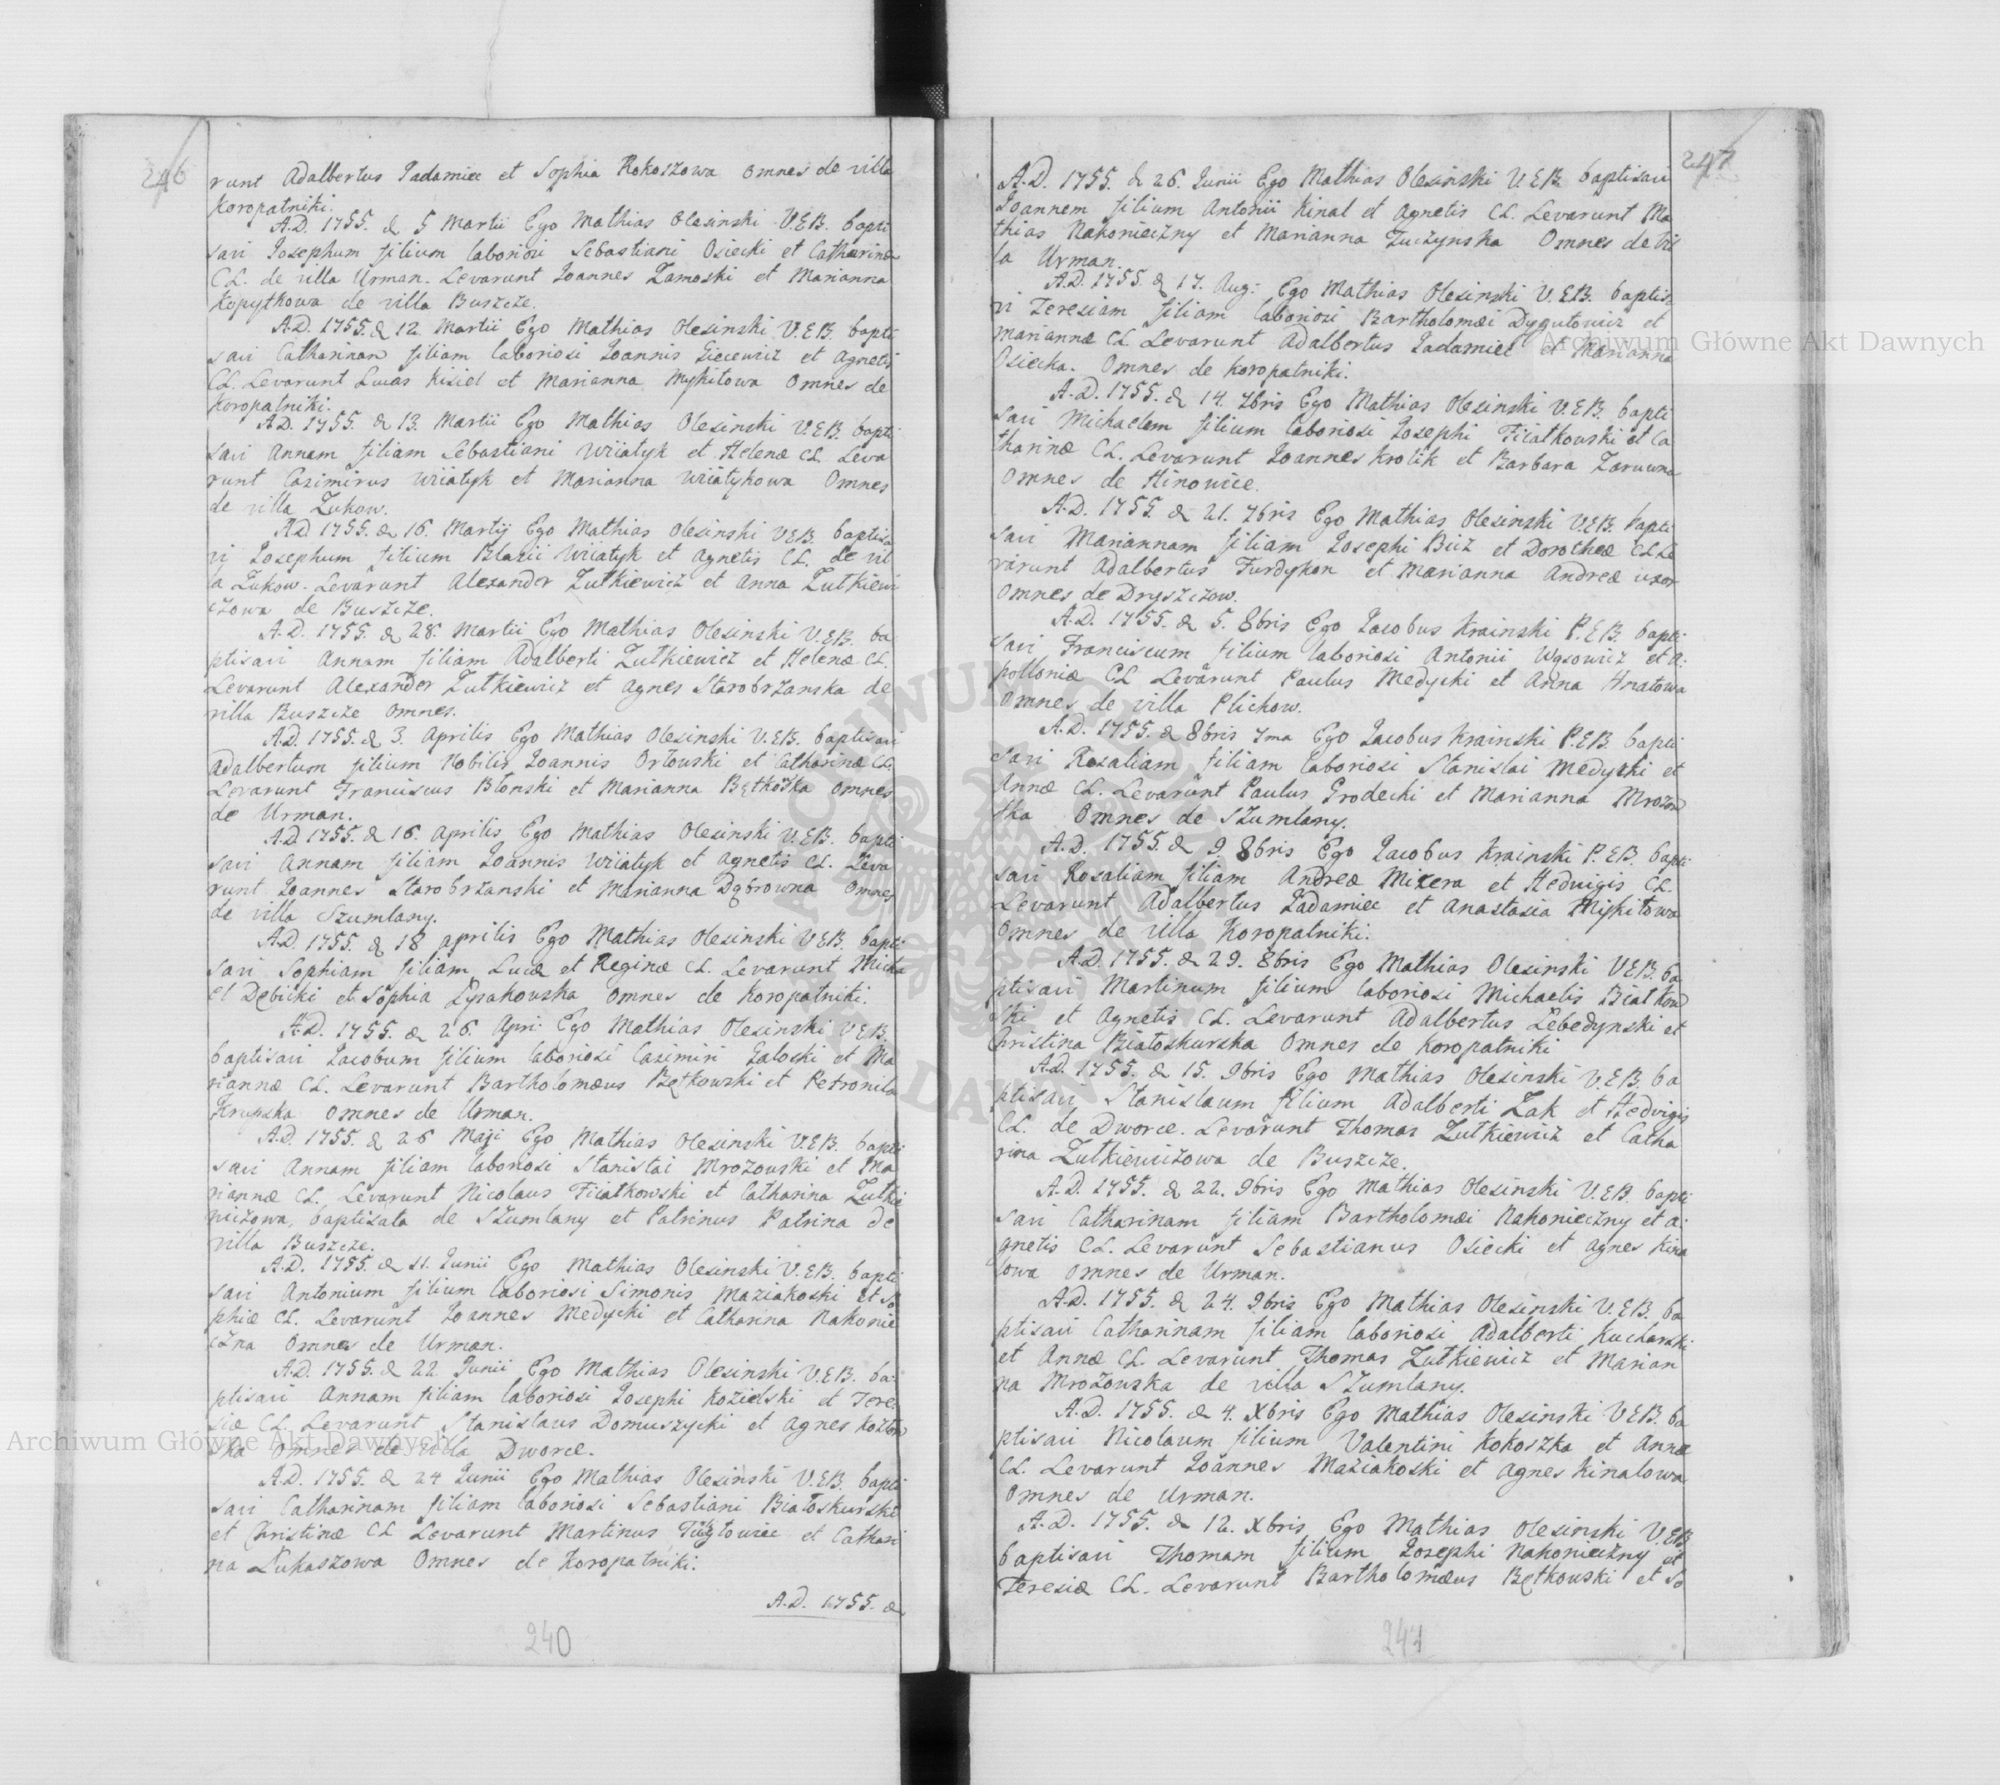 246
runt Adalbertus Padamiec et Sophia Kokoszowa omnes de villa
Koropatniki.
A.D. 1755. d 5 Martii Ego Mathias Olesinski V.E.B. bapti
savi Josephum filium laboriosi Sebastiani Osiecki et Catharinæ
C.L. de villa Urman. Levarunt Joannes Zamoski et Marianna
Kopytkowa de villa Buszcze.
A.D. 1755. d 12 Martii Ego Mathias Olesinski V.E.B. bapti
savi Catharinam filiam laboriosi Joannis et Agnetis
C.L. Levarunt Lucas Kisiel et Marianna Mykitowa Omnes de
Koropatniki.
A.D. 1755. d 13. Martii Ego Mathias Olesinski V.E.B. bapti
savi Annam filiam Sebastiani Wiiatyk et Helenæ C.L. Leva
runt Casimirus Wiiatyk et Marianna Wiiatykowa Omnes
de villa Zukow.
A.D. 1755. d 16. Martij Ego Mathias Olesinski V.E.B. baptisa
vi Josephum filium Blasii Wiiatyk et Agnetis C.L. de vil
la Zukow. Levarunt Alexander Zutkiewicz et Anna Zutkiewi
czowa de Buszcze.
A.D. 1755. d 28. Martii Ego Mathias Olesinski V.E.B. ba
ptisavi Annam filiam Adalberti Zutkiewicz et Helenæ C.L.
Levarunt Alexander Zutkiewicz et Agnes Starobrzanska de
villa Buszcze omnes.
A.D. 1755. d 3. Aprilis Ego Mathias Olesinski V.E.B. baptisavi
Adalbertum filium Nobilis Joannis Orłowski et Catharinæ C.L.
Levarunt Franciscus Blonski et Marianna Bętkoska omnes
de Urman.
A.D. 1755. d 16. Aprilis Ego Mathias Olesinski V.E.B. bapti
savi Annam filiam Joannis Wiiatyk et Agnetis C.L. Leva
runt Joannes Starobrzanski et Marianna Dąbrowna omnes
de villa Szumlany.
A.D. 1755. d 18 Aprilis Ego Mathias Olesinski V.E.B. bapti
savi Sophiam filiam Lucæ et Reginæ C.L. Levarunt Micha
el Dębicki et Sophia Łysakowska omnes de Koropatniki.
A.D. 1755. d 26. Apri: Ego Mathias Olesinski V.E.B.
baptisavi Jacobum filium laboriosi Casimiri Galoski et Ma
riannæ C.L. Levarunt Bartholomæus Bętkowski et Petronila
Krupska omnes de Urman.
A.D. 1755. d 26 Maji Ego Mathias Olesinski V.E.B. bapti
savi Annam filiam laboriosi Stanislai Mrozowski et Ma
riannæ C.L. Levarunt Nicolaus Fiiatkowski et Catharina Zutkie
wiczowa, baptisata de Szumlany et Patrinus Patrina de
villa Buszcze.
A.D. 1755. d 11. Junii Ego Mathias Olesinski V.E.B. bapti
savi Antonium filium laboriosi Simonis Maziakoski et So
phiæ C.L. Levarunt Joannes Medycki et Catharina Nakonie
czna Omnes de Urman.
A.D. 1755. d 22 Junii Ego Mathias Olesinski V.E.B. ba:
ptisavi Annam filiam laboriosi Josephi Kozielski et Tere
siæ C.L. Levarunt Stanislaus Domuszycki et Agnes Kozłow
ska omnes de villa Dworce.
A.D. 1755. d 24 Junii Ego Mathias Olesinski V.E.B. bapti
savi Catharinam filiam laboriosi Sebastiani Białoskurski
et Christinæ C.L. Levarunt Martinus et Cathari
na Lukaszowa Omnes de Koropatniki.
A.D. 1755. d
240
247
A.D. 1755. d 26. Junii Ego Mathias Olesinski V.E.B. baptisavi
Joannem filium Antonii Kinal et Agnetis C.L. Levarunt Ma
thias Nakonieczny et Marianna Zuczynska Omnes de vil
la Urman.
A.D. 1755. d 17. Aug: Ego Mathias Olesinski V.E.B. baptisa
vi Teresiam filiam laboriosi Bartholomæi Dygutowicz et
Mariannæ C.L. Levarunt Adalbertus Padamiec et Marianna
Osiecka. Omnes de Koropatniki.
A.D. 1755. d 14. 7bris Ego Mathias Olesinski V.E.B. bapti
savi Michaelem filium laboriosi Josephi Fiiatkowski et Ca
tharinæ C.L. Levarunt Joannes Krolik et Barbara
omnes de Hinowice.
A.D. 1755. d 21. 7bris Ego Mathias Olesinski V.E.B. bapti
savi Mariannam filiam Josephi Bicz et Dorotheæ C.L. Le
varunt Adalbertus Furdykon et Marianna Andreæ uxor
Omnes de Dryszczow.
A.D. 1755. d 5. 8bris Ego Jacobus Krainski P.E.B. bapti
savi Franciscum filium laboriosi Antonii Wąsowicz et A:
polloniæ C.L. Levarunt Paulus Medycki et Anna Hnatowa
omnes de villa Plichow.
A.D. 1755. d 8bris 7ma Ego Jacobus Krainski P.E.B. bapti
savi Rosaliam filiam laboriosi Stanislai Medycki et
Annæ C.L. Levarunt Paulus Grodecki et Marianna Mrozow
ska Omnes de Szumlany.
A.D. 1755. d 9. 8bris Ego Jacobus Krainski P.E.B. bapti
savi Rosaliam filiam Andreæ Mizera et Hedvigis C.L.
Levarunt Adalbertus Padamiec et Anastasia Mykitowa
omnes de villa Koropatniki.
A.D. 1755. d 29. 8bris Ego Mathias Olesinski V.E.B. ba
ptisavi Martinum filium laboriosi Michaelis Białkow
ski et Agnetis C.L. Levarunt Adalbertus Lebedynski et
Christina Białoskurska Omnes de Koropatniki
A.D. 1755. d 15. 9bris Ego Mathias Olesinski V.E.B. ba
ptisavi Stanislaum filium Adalberti Zak et Hedvigis
C.L. de Dworce. Levarunt Thomas Zutkiewicz et Catha
rina Zutkiewiczowa de Buszcze.
A.D. 1755. d 22. 9bris Ego Mathias Olesinski V.E.B. bapti
savi Catharinam filiam Bartholomæi Nakonieczny et A:
gnetis C.L. Levarunt Sebastianus Osiecki et Agnes Kina
lowa omnes de Urman.
A.D. 1755. d 24. 9bris Ego Mathias Olesinski V.E.B. ba
ptisavi Catharinam filiam laboriosi Adalberti Kucharski
et Annæ C.L. Levarunt Thomas Zutkiewicz et Marian
na Mrozowska de villa Szumlany.
A.D. 1755. d 4. Xbris Ego Mathias Olesinski V.E.B. ba
ptisavi Nicolaum filium Valentini Kokoszka et Annæ
C.L. Levarunt Joannes Maziakoski et Agnes Kinalowa
omnes de Urman.
A.D. 1755. d 12. Xbris Ego Mathias Olesinski V.E.B.
baptisavi Thomam filium Josephi Nakonieczny et
Teresiæ C.L. Levarunt Bartholomæus Bętkowski et So
241
Archiwum Główne Akt Dawnych
Archiwum Główne Akt Dawnych
ARCHIWUM GŁÓWNE AKT DAWNYCH